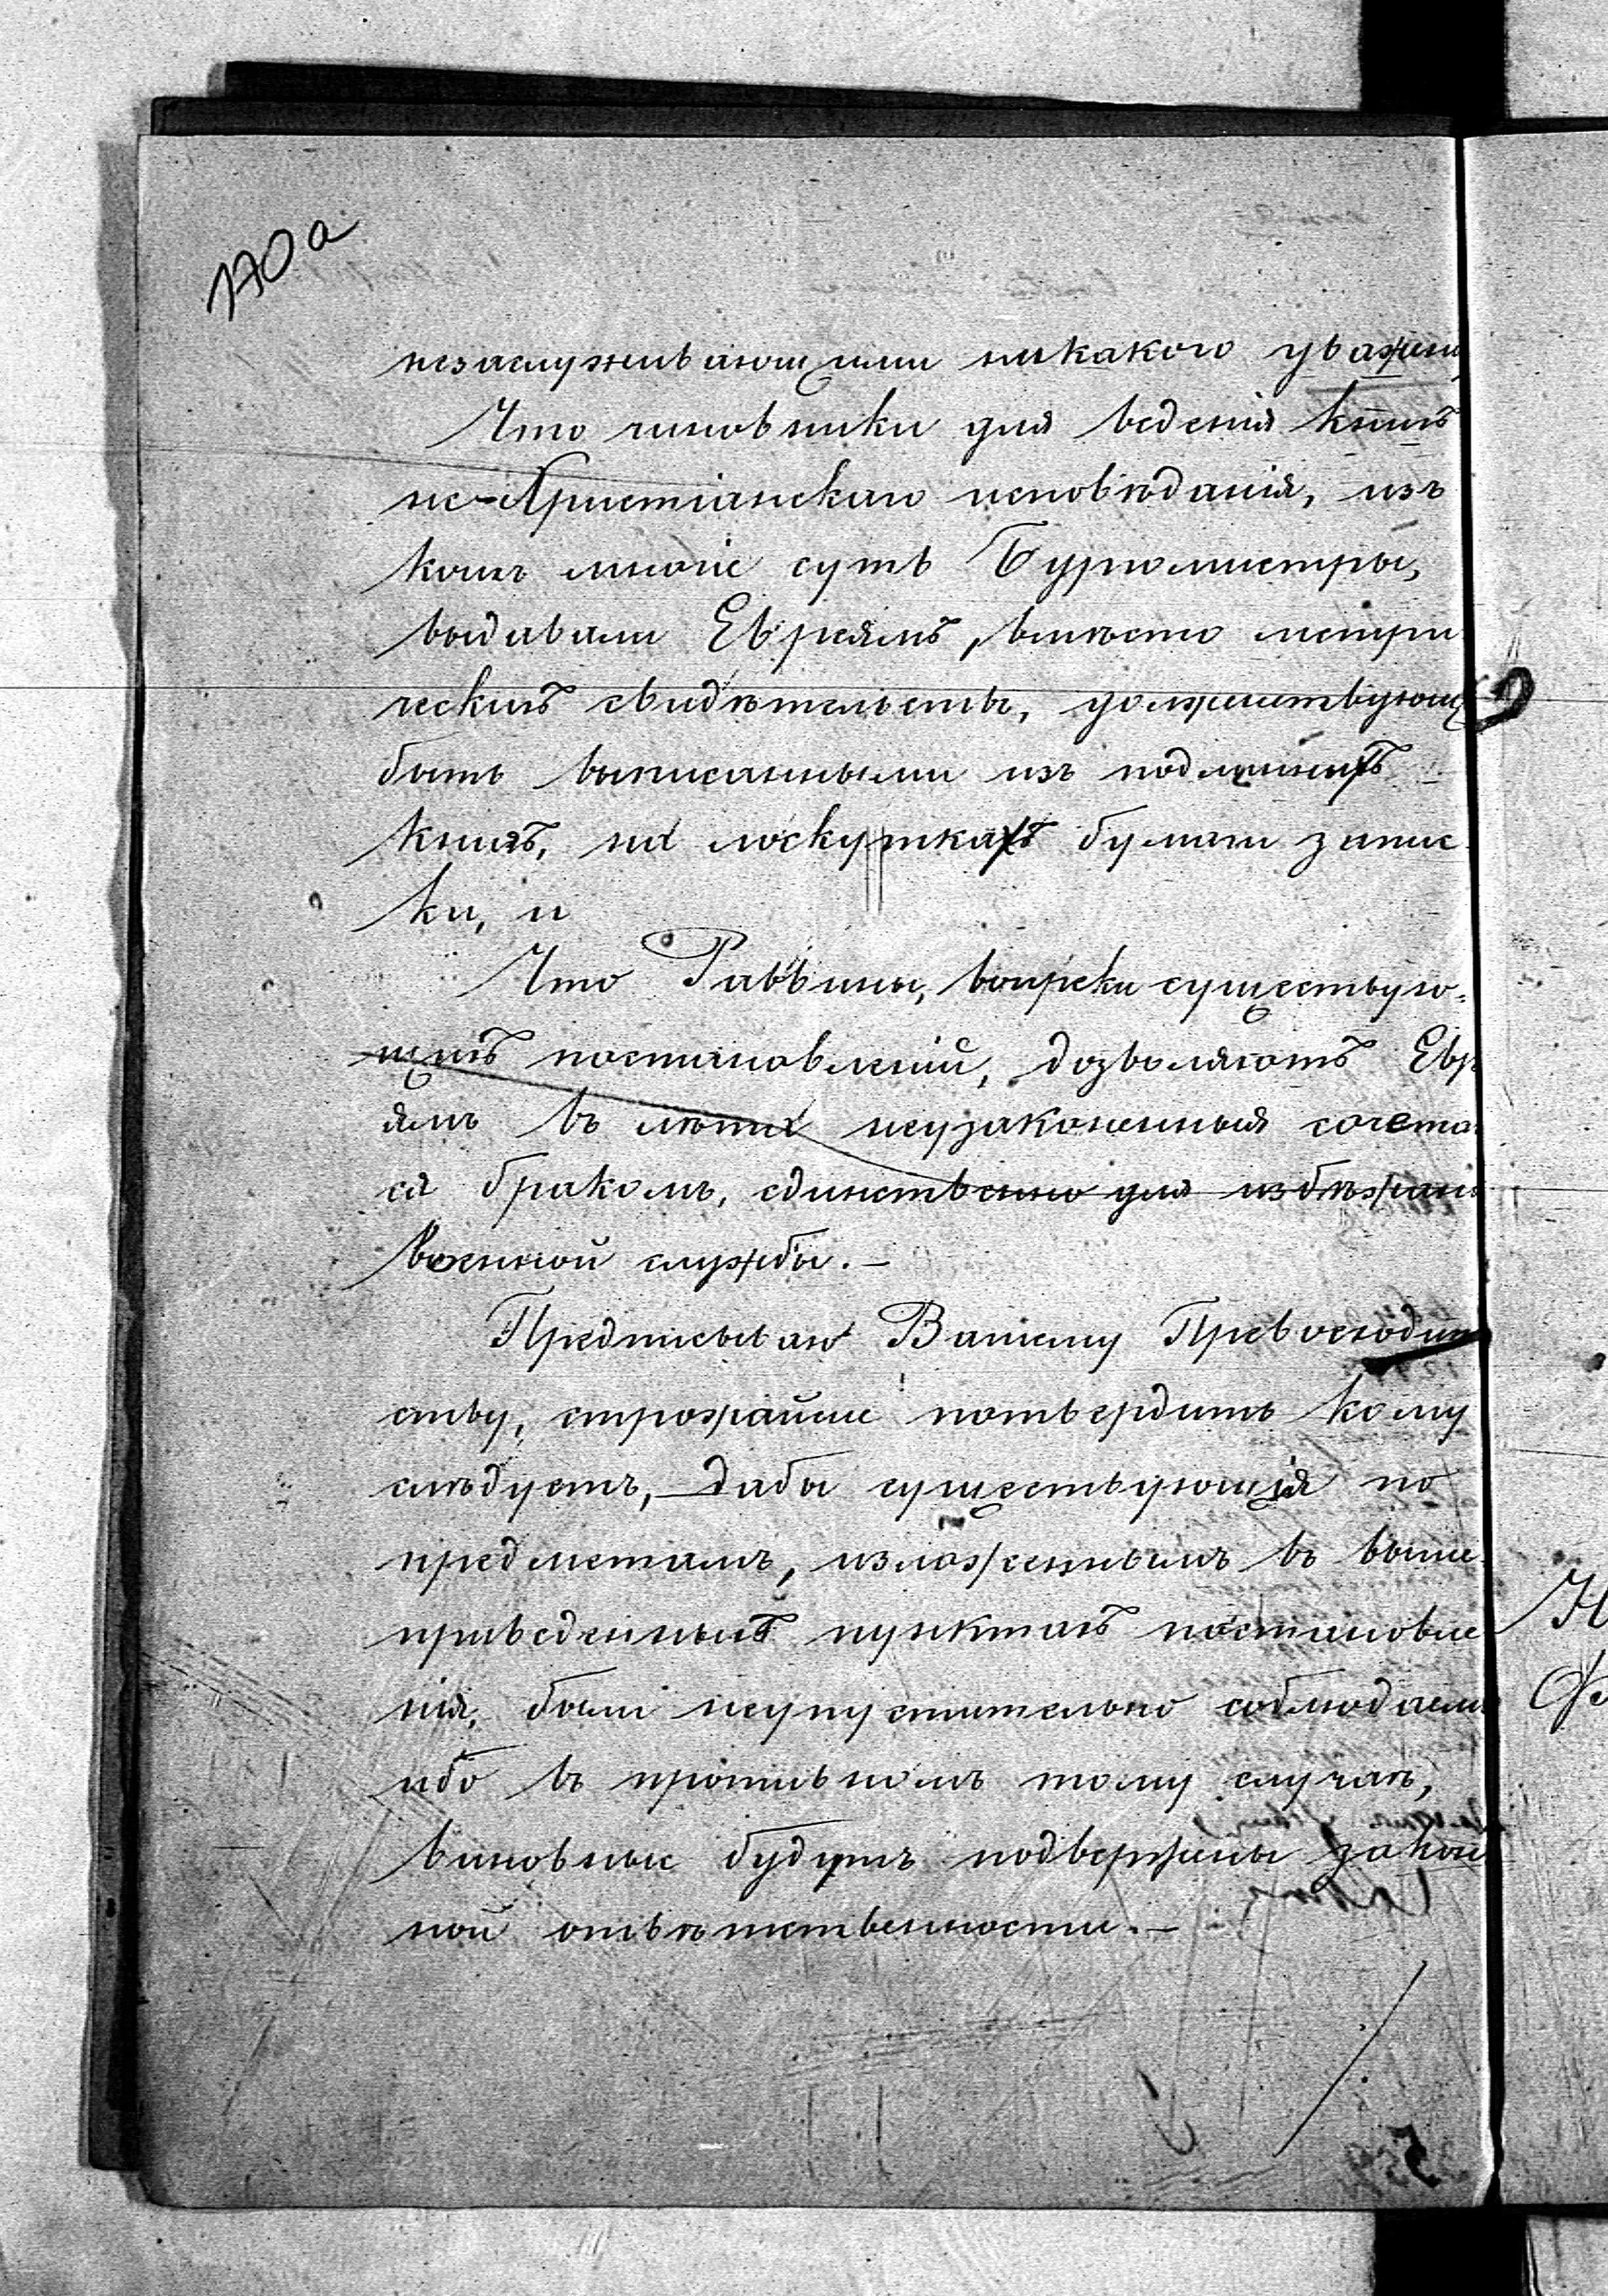 170а
незаслуживающими никакого уважен
Что чиновники для веденія книгъ
не-Христіанскаго исповѣданія, изъ
коихъ многіе суть Бургомистры,
выдавали Евреямъ, вмѣсто метри
ческихъ свидѣтельствъ, долженствующ
быть выписанными изъ подлинныхъ
книгъ, на лоскуткахъ бумаги запис
ки, и
Что Раввины, вопреки существую-
щихъ постановленій, дозволяютъ Евр
ямъ въ лѣта неузаконенныя сочета
ся бракомъ, единственно для избѣжані
военной службы.—
Предписываю Вашему Превосходит
ству, строжайше потвердить кому
слѣдуетъ, дабы существующія по
предметамъ, изложеннымъ въ выше-
приведенныхъ пунктахъ постановле
нія, были неупустительно соблюдаем
ибо въ противномъ тому случаѣ,
виновные будутъ подвержены закон
ной отвѣтственности.—